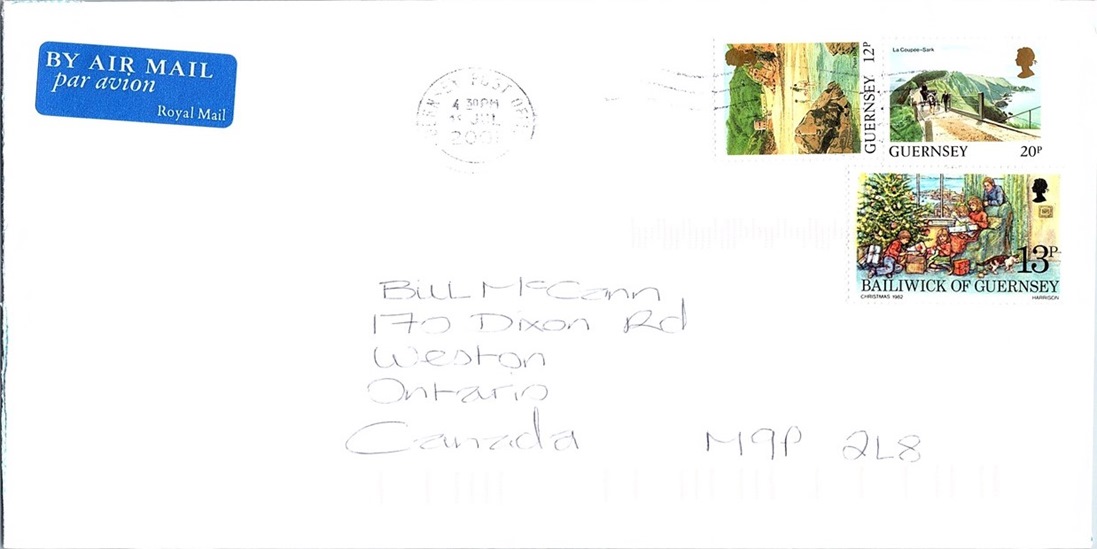 BY AIR MAIL
par avion
Royal Mail
GUERNSEY POST OFFICE
4 30 PM
JUL
2001
GUERNSEY 12P
La Coupee-Sark
GUERNSEY 20P
13P
BAILIWICK OF GUERNSEY
CHRISTMAS 1982 HARRISON
Bill McCann
170 Dixon Rd
Weston
Ontario
Canada M9P 2L8